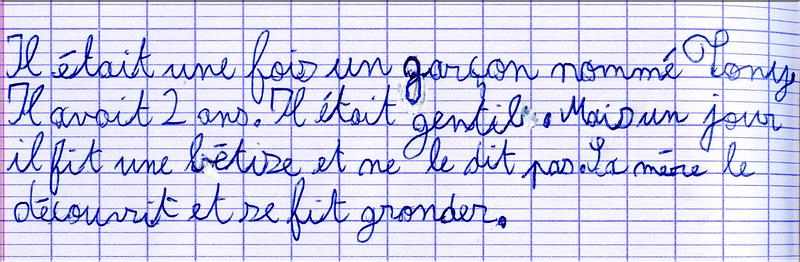 Il était une fois un garçon nommé Tony
Il avait 2 ans. Il était gentil. Mais un jour
il fit une bêtize et ne le dit pas. Sa mère le
découvrit et se fit gronder.